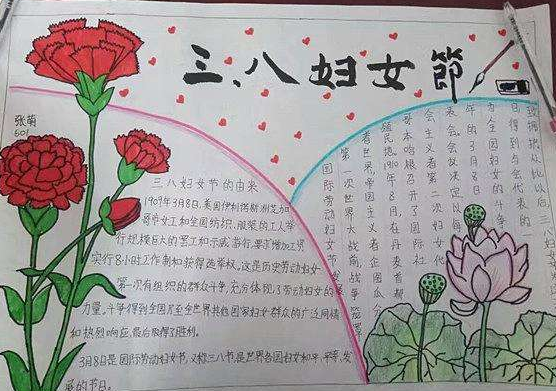 三、八妇女節
张萌
601
三八妇女节的由来
1909年3月8日,美国伊利诺斯洲芝加
哥市女工和全国纺织、服装的工人举
行规模巨大的罢工和示威游行,要求增加工资
实行8小时工作制和获得选举权。这是历史劳动妇女
第一次有组织的群众斗争,充分体现了劳动妇女的
力量,斗争得到全国乃至全世界其他国家妇女群众的广泛同情
和热烈响应,最后取得了胜利。
3月8日是国际劳动妇女节,又称三八节,是世界各国妇女和平、平等、发
展的节日。
国际劳动妇女节
第一次世界大战前战争
者世界,帝国主义者企图瓜分
殖民地。1910年8月,在丹麦首都
哥本哈根召开了国际社
会主义者第二次妇女代
表会,会议决定以每
年的3月8日
为全国妇女的斗争
日得到与会代表的一
致拥护,从此以后,三八妇女